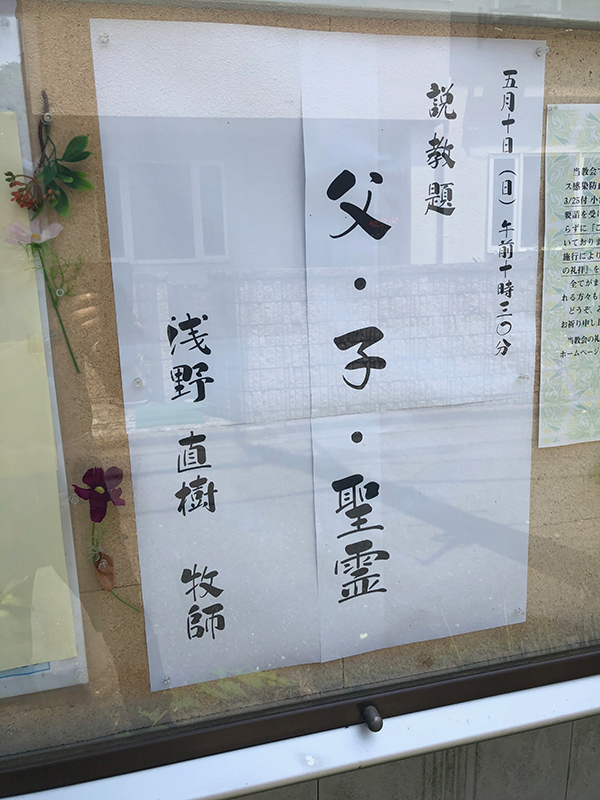 五月十日(日)午前十時三〇分
説教題
父・子・聖霊
浅野 直樹 牧師
当教会で
ス感染防止
3/25付 小
要請を受け
らずに「こ
いておりま
施行により
の礼拝」を
全てがま
れる方々も
どうぞ、
お祈り申し上
当教会の礼
ホームページ